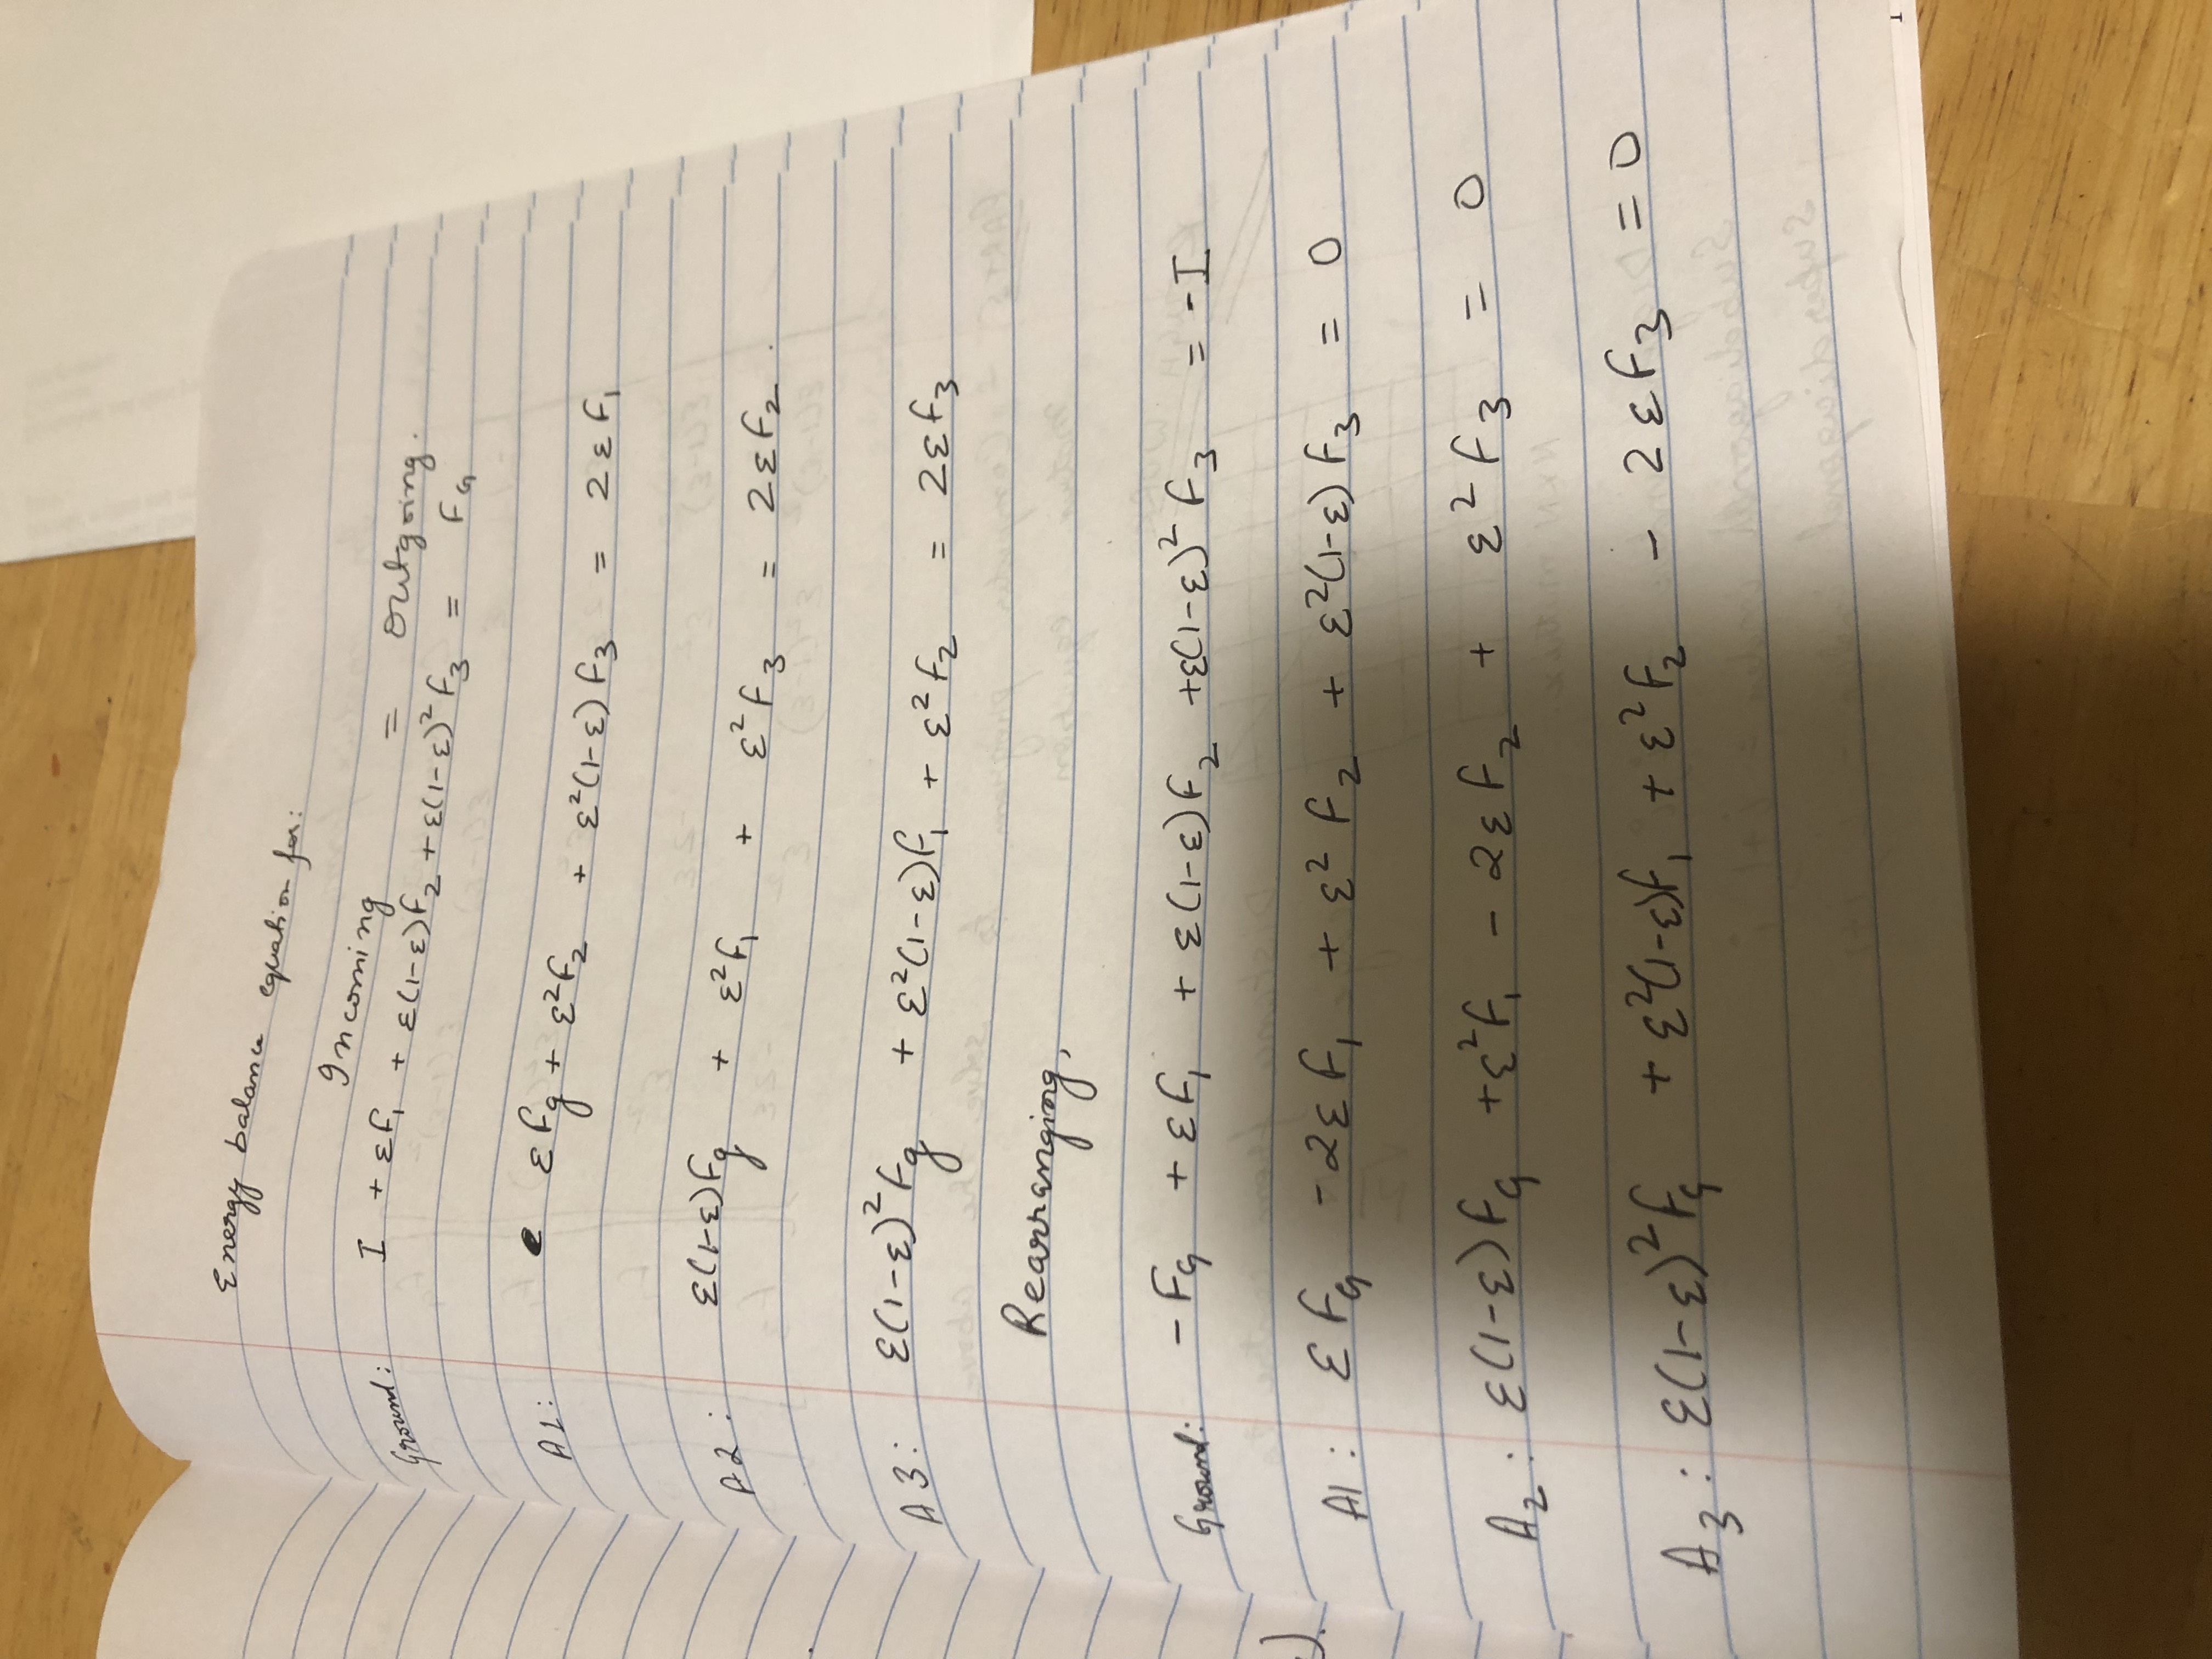 Energy balance equation for:
Incoming = outgoing.
Ground: I + εf₁ + ε(1-ε)f₂ + ε(1-ε)² f₃ = F_G
A1: εf_g + ε²f₂ + ε²(1-ε) f₃ = 2εf₁
A2: ε(1-ε)f_g + ε²f₁ + ε²f₃ = 2εf₂
A3: ε(1-ε)²f_g + ε²(1-ε)f₁ + ε²f₂ = 2εf₃
Rearranging,
Ground: -F_G + εf₁ + ε(1-ε)f₂ +ε(1-ε)² f₃ = -I
A1: εf_G -2εf₁ + ε² f₂ + ε²(1-ε) f₃ = 0
A₂: ε(1-ε)f_G +ε²f₁ - 2εf₂ + ε²f₃ = 0
A₃: ε(1-ε)²f_G + ε²(1-ε)f₁ + ε²f₂ - 2εf₃ = 0